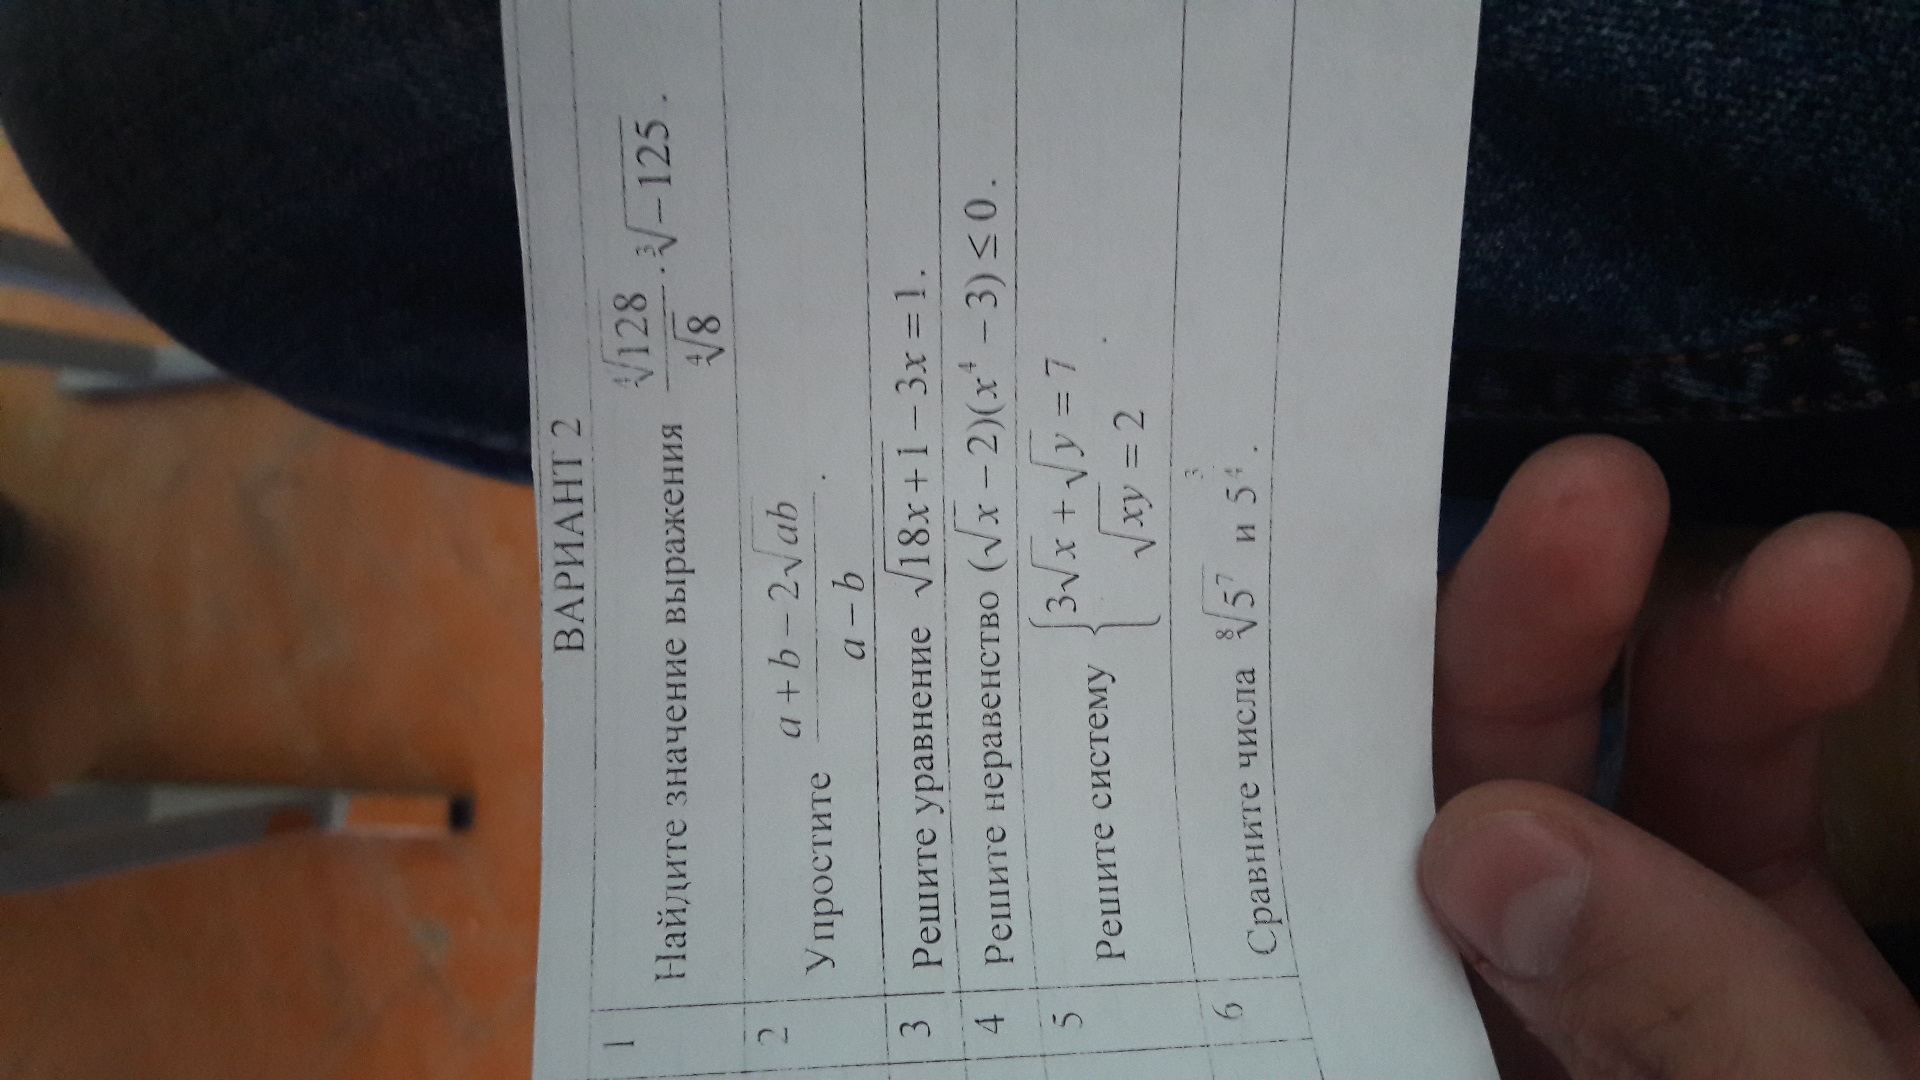 ВАРИАНТ 2
1 Найдите значение выражения \frac{\sqrt[4]{128}}{\sqrt[4]{8}} \cdot \sqrt[3]{-125}.
2 Упростите \frac{a+b-2\sqrt{ab}}{a-b}.
3 Решите уравнение \sqrt{18x+1}-3x=1.
4 Решите неравенство (\sqrt{x}-2)(x^4-3) ≤ 0.
5 Решите систему \begin{cases} 3\sqrt{x}+\sqrt{y}=7 \\ \sqrt{xy}=2 \end{cases}.
6 Сравните числа \sqrt[8]{5^7} и 5^{\frac{3}{4}}.